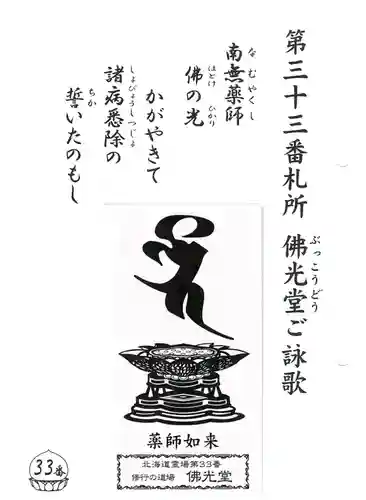 第三十三番札所 佛光堂ご詠歌
ぶっこうどう
南無薬師
なむやくし
佛の光
ほとけ ひかり
かがやきて
諸病悉除の
しょびょうしつじょ
誓いたのもし
ちか
薬師如来
北海道霊場第33番
修行の道場 佛光堂
33番